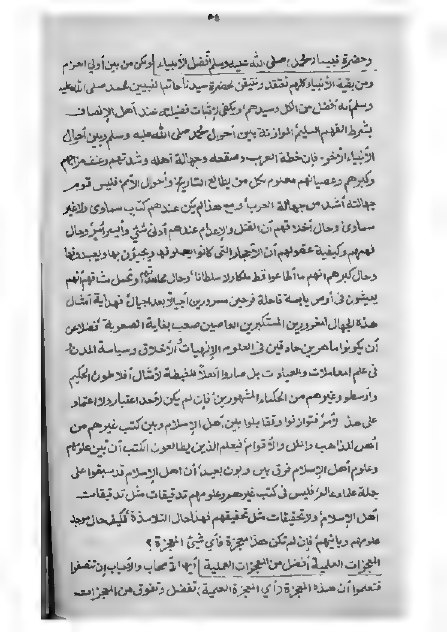 ٣٥
وحضرة نبينا محمد صلى الله عليه وسلم أفضل الأنبياء ولكن من بين أولي العزم
ومن بقية الأنبياء كلهم نعتقد ونتيقن لحضرة سيدنا خاتم النبيين محمد صلى الله عليه
وسلم أنه أفضل من الكل وسيدهم ويكفي لإثبات فضيلته عند أهل الإنصاف
بشرط الفهم السليم الموازنة بين أحوال محمد صلى الله عليه وسلم وبين أحوال
الأنبياء الأخر، فإن خطة العرب وصقعه وجهالة أهله وشدتهم وعنف مزاجهم
وكبرهم وعصيانهم معلوم لكل من يطالع التاريخ وأحوال الأمم فليس قوم
جهالته أشد من جهالة العرب ومع هذا لم يكن عندهم كتاب سماوي ولا غير
سماوي وحال أخلاقهم أن القتل والإعدام عندهم أدنى شيء وأيسر أمر وحال
فهمهم وكيفية عقولهم أن الأحجار التي كانوا يعملونها ويجيؤن بها ويعبدونها
وحال كبرهم أنهم ما أطاعوا قط ملكا ولا سلطانا وحال وتحمل مشاقهم أنهم
يعيشون في أرض يابسة قاحلة فرحين مسرورين أجيالا بعد أجيال فهداية أمثال
هذه الجهال المغرورين المستكبرين العاصين صعب بغاية الصعوبة فضلا عن
أن يكونوا ماهرين حاذقين في العلوم الإلهيات والأخلاق وسياسة المدن
في علم المعاملات والعبادات بل صاروا أهلا للغبطة لأمثال أفلاطون الحكيم
وأرسطو وغيرهم من الحكماء المشهورين فإن لم يكن لأحد اعتبار ولا اعتماد
على هذا الأمر فتوازنوا وتقابلوا بين أهل الإسلام وبين كتب غيرهم من
أهل المذاهب والملل والأقوام، فيعلم الذين يطالعون الكتب أن بين علومهم
وعلوم أهل الإسلام فرق بين وبون بعيد، أن أهل الإسلام قد سبقوا على
جملة علماء عالم، فليس في كتب غيرهم وعلومهم تدقيقات مثل تدقيقات
أهل الإسلام ولا تحقيقات مثل تحقيقهم فهذا حال التلامذة، فكيف حال موجد
علومهم وبانيهم؟ فإن لم تكن هذا معجزة فأي شيئ المعجزة؟
المعجزات العلمية أفضل من المعجزات العملية أيها الأصحاب والأحباب إن تنصفوا
فتعلموا أن هذه المعجزة (أي المعجزة العلمية) تفضل وتفوق من المعجزات